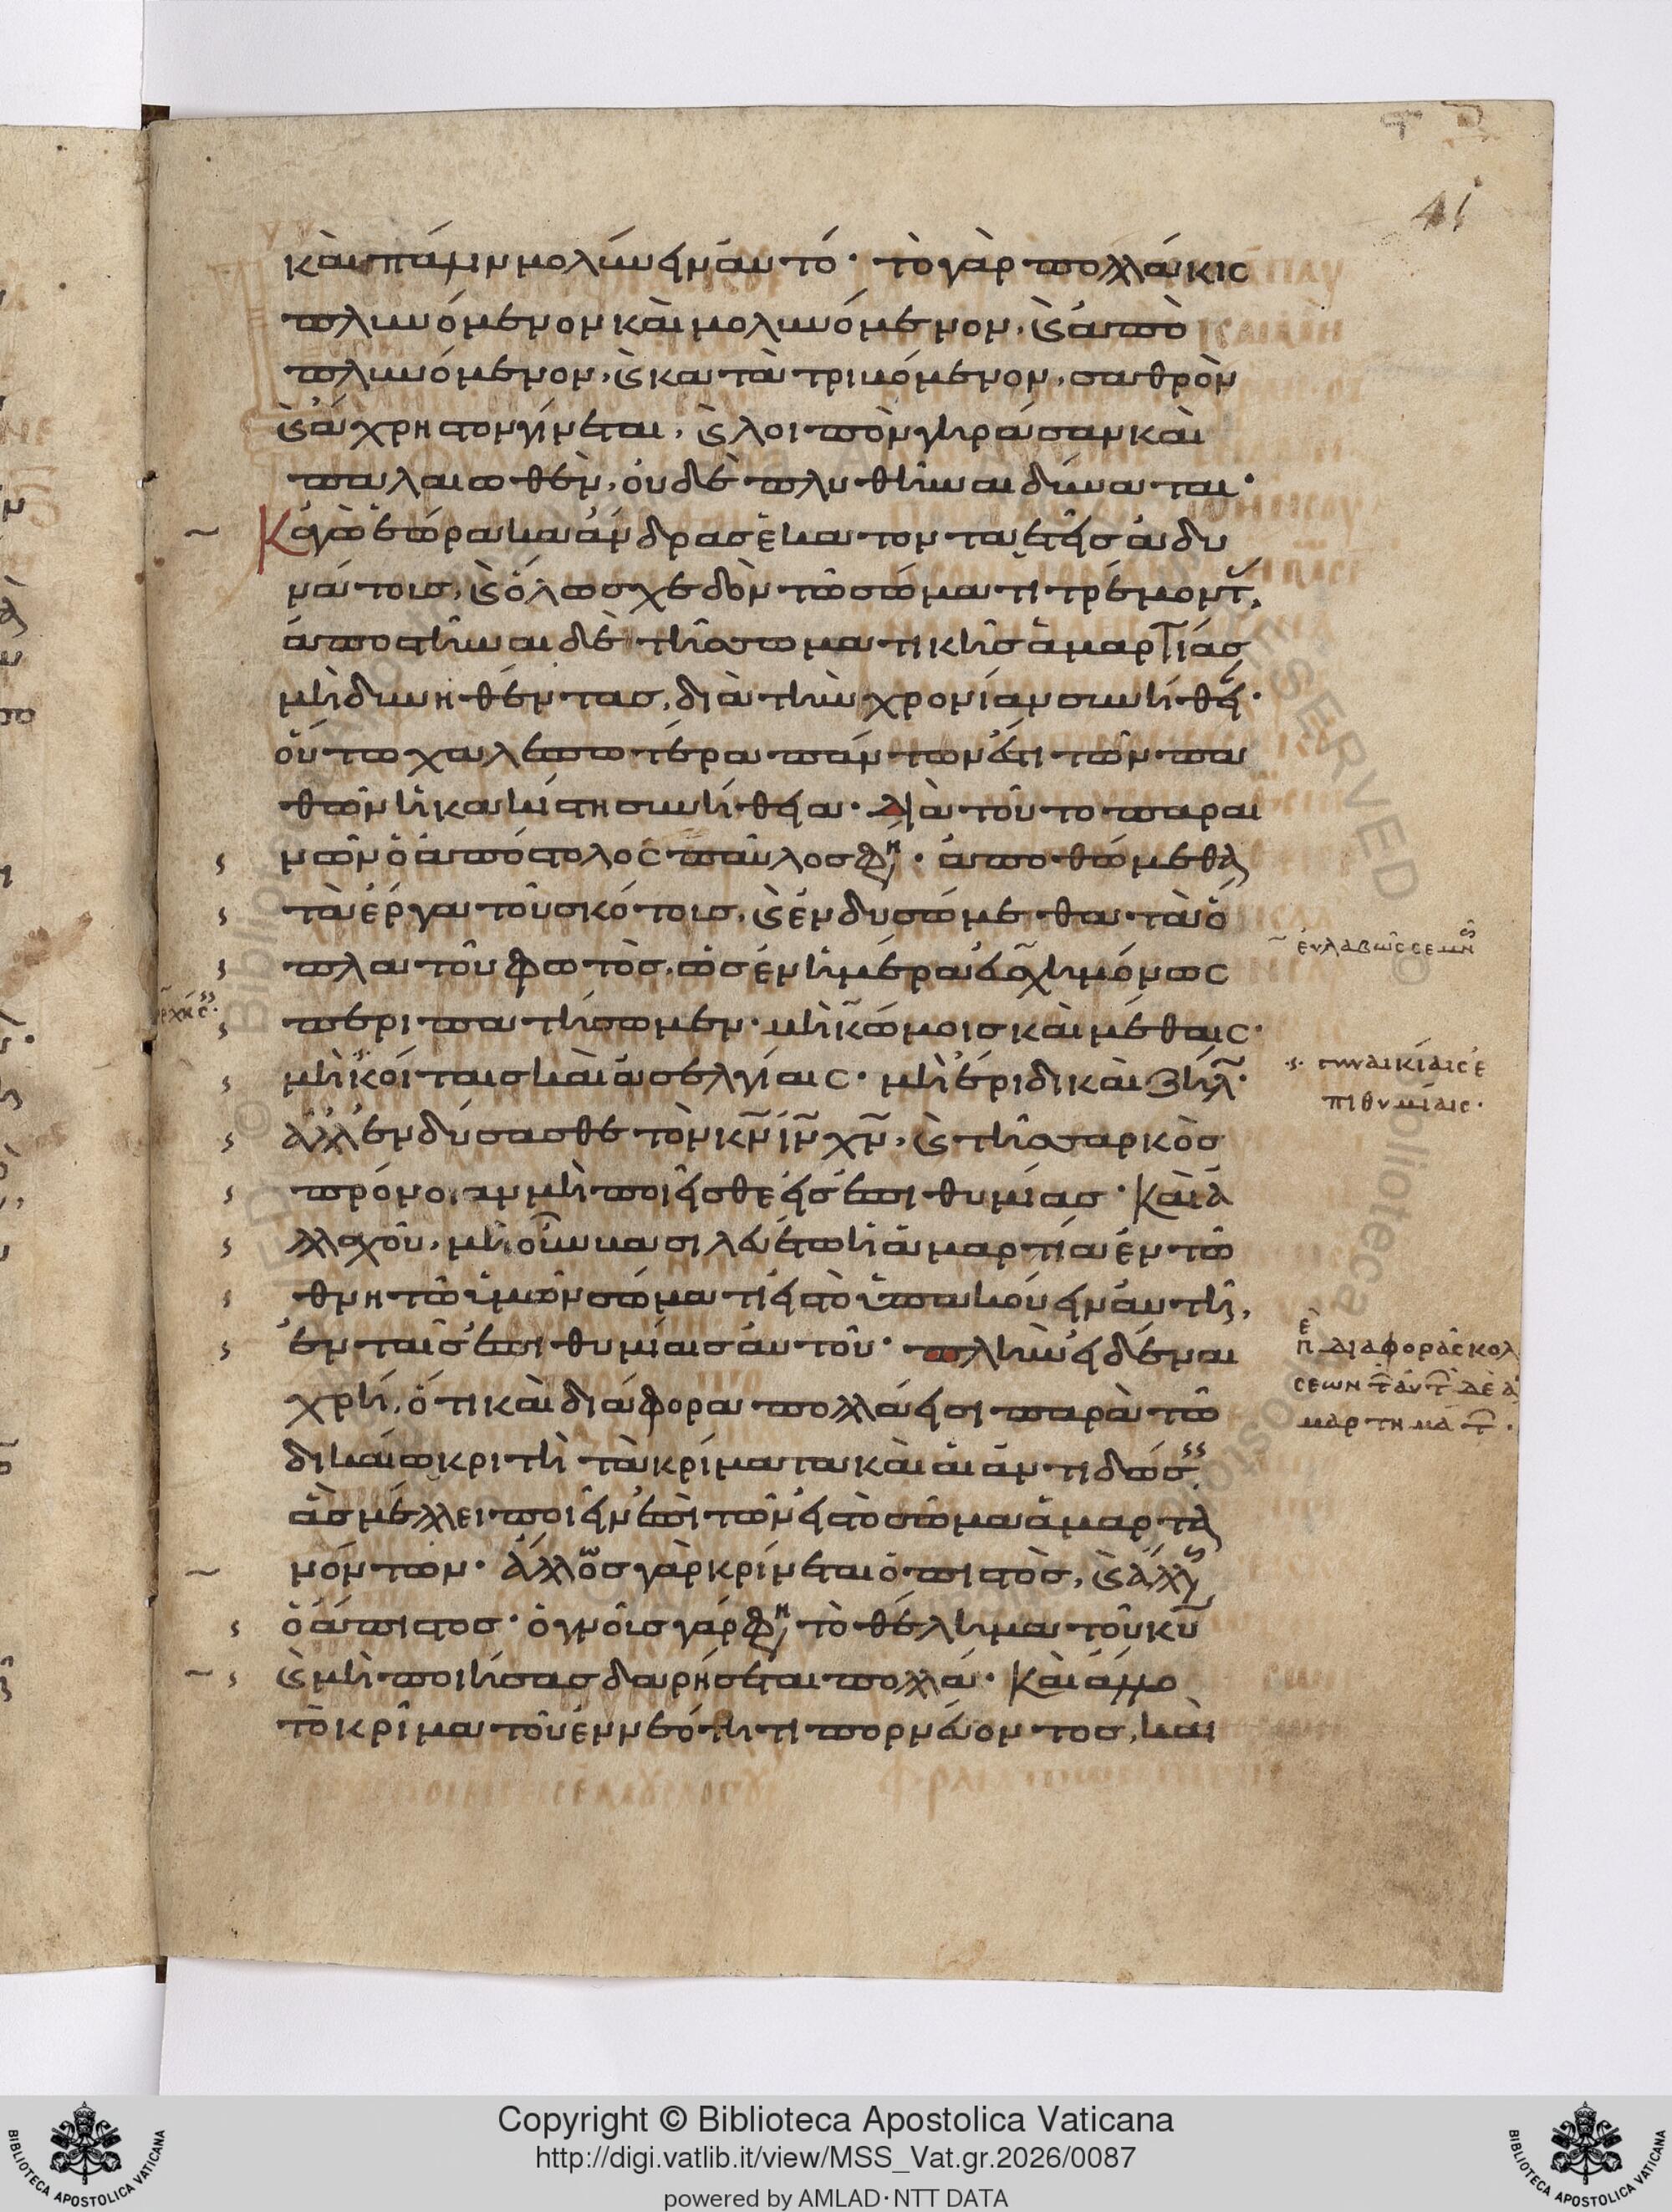 41
καὶ πάλιν μολύνειν αὐτό· τὸ γὰρ πολλάκις
πλυνόμενον καὶ μολυνόμενον, ϗ ἀπο
πλυνόμενον, ϗ κατατριβόμενον, σαθρὸν
ϗ ἄχρηστον γίνεται, ϗ λοιπὸν γηράσαν καὶ
παλαιωθὲν, οὐδὲ πλυθῆναι δύναται·
Κἀγὼ ἑώρακα ἄνδρας ἑκατονταετεῖς ἀδυ
νάτοις, ϗ ὅλως σχεδὸν τῶ σώματι τρέμοντ
ἀποστῆναι δὲ τῆς σωματικῆς ἁμαρτίας
μὴ δυνηθέντας, διὰ τὴν χρονίαν συνήθει·
οὕτω χαλεπωτέρα πάντων ἐστὶ τῶν πα
θῶν ἡ κακίστη συνήθεια· Διὰ τοῦτο παραι
νῶν ὁ ἀπόστολος παῦλος φη· ἀποθώμεθα
τὰ ἔργα τοῦ σκότους, ϗ ἐνδυσώμεθα τὰ ὅ
πλα τοῦ φωτὸς, ὡς ἐν ἡμέρα εὐσχημόνως
περιπατήσωμεν· μὴ κώμοις καὶ μέθαις·
μὴ κοίταις καὶ ἀσελγίαις· μὴ ἔριδι καὶ ζήλ·
ἀλλ' ἐνδύσασθε τὸν κν ιν χν, ϗ τῆς σαρκὸς
πρόνοιαν μὴ ποιεῖσθε εἰς ἐπιθυμίας· Καὶ ἀ
λλαχοῦ, μὴ οὖν βασιλευέτω ἡ ἁμαρτία ἐν τῶ
θνητῶ ὑμῶν σώματι εἰς τὸ ὑπακούειν αὐτῆ,
ἐν ταῖς ἐπιθυμίαις αὐτοῦ· πλὴν εἰδέναι
χρή, ὅτι καὶ διάφορα πολλά εἰσι παρὰ τῶ
δικαίω κριτῆ τὰ κρίματα καὶ αἱ ἀντιδώσ
ἃς μέλλει ποιεῖν ἐπὶ τῶν εἰς τὸ σῶμα ἁμαρτα
νόντων· ἄλλως γὰρ κρίνεται ὁ πιστὸς, ϗ ἄλλ
ὁ ἄπιστος· ὁ γνοῖς γάρ φη τὸ θέλημα τοῦ κυ
ϗ μὴ ποιήσας δαρήσεται πολλά· Καὶ ἄλλο
τὸ κρίμα τοῦ ἐν νεότητι πορνεύοντος, καὶ
εὐλαβῶς σεμν
γυναικίαις ἐ
πιθυμίαις·
διαφορᾶς κολ
σεων
μαρτημάτ
Copyright © Biblioteca Apostolica Vaticana
http://digi.vatlib.it/view/MSS_Vat.gr.2026/0087
powered by AMLAD·NTT DATA
BIBLIOTECA APOSTOLICA VATICANA
BIBLIOTECA APOSTOLICA VATICANA